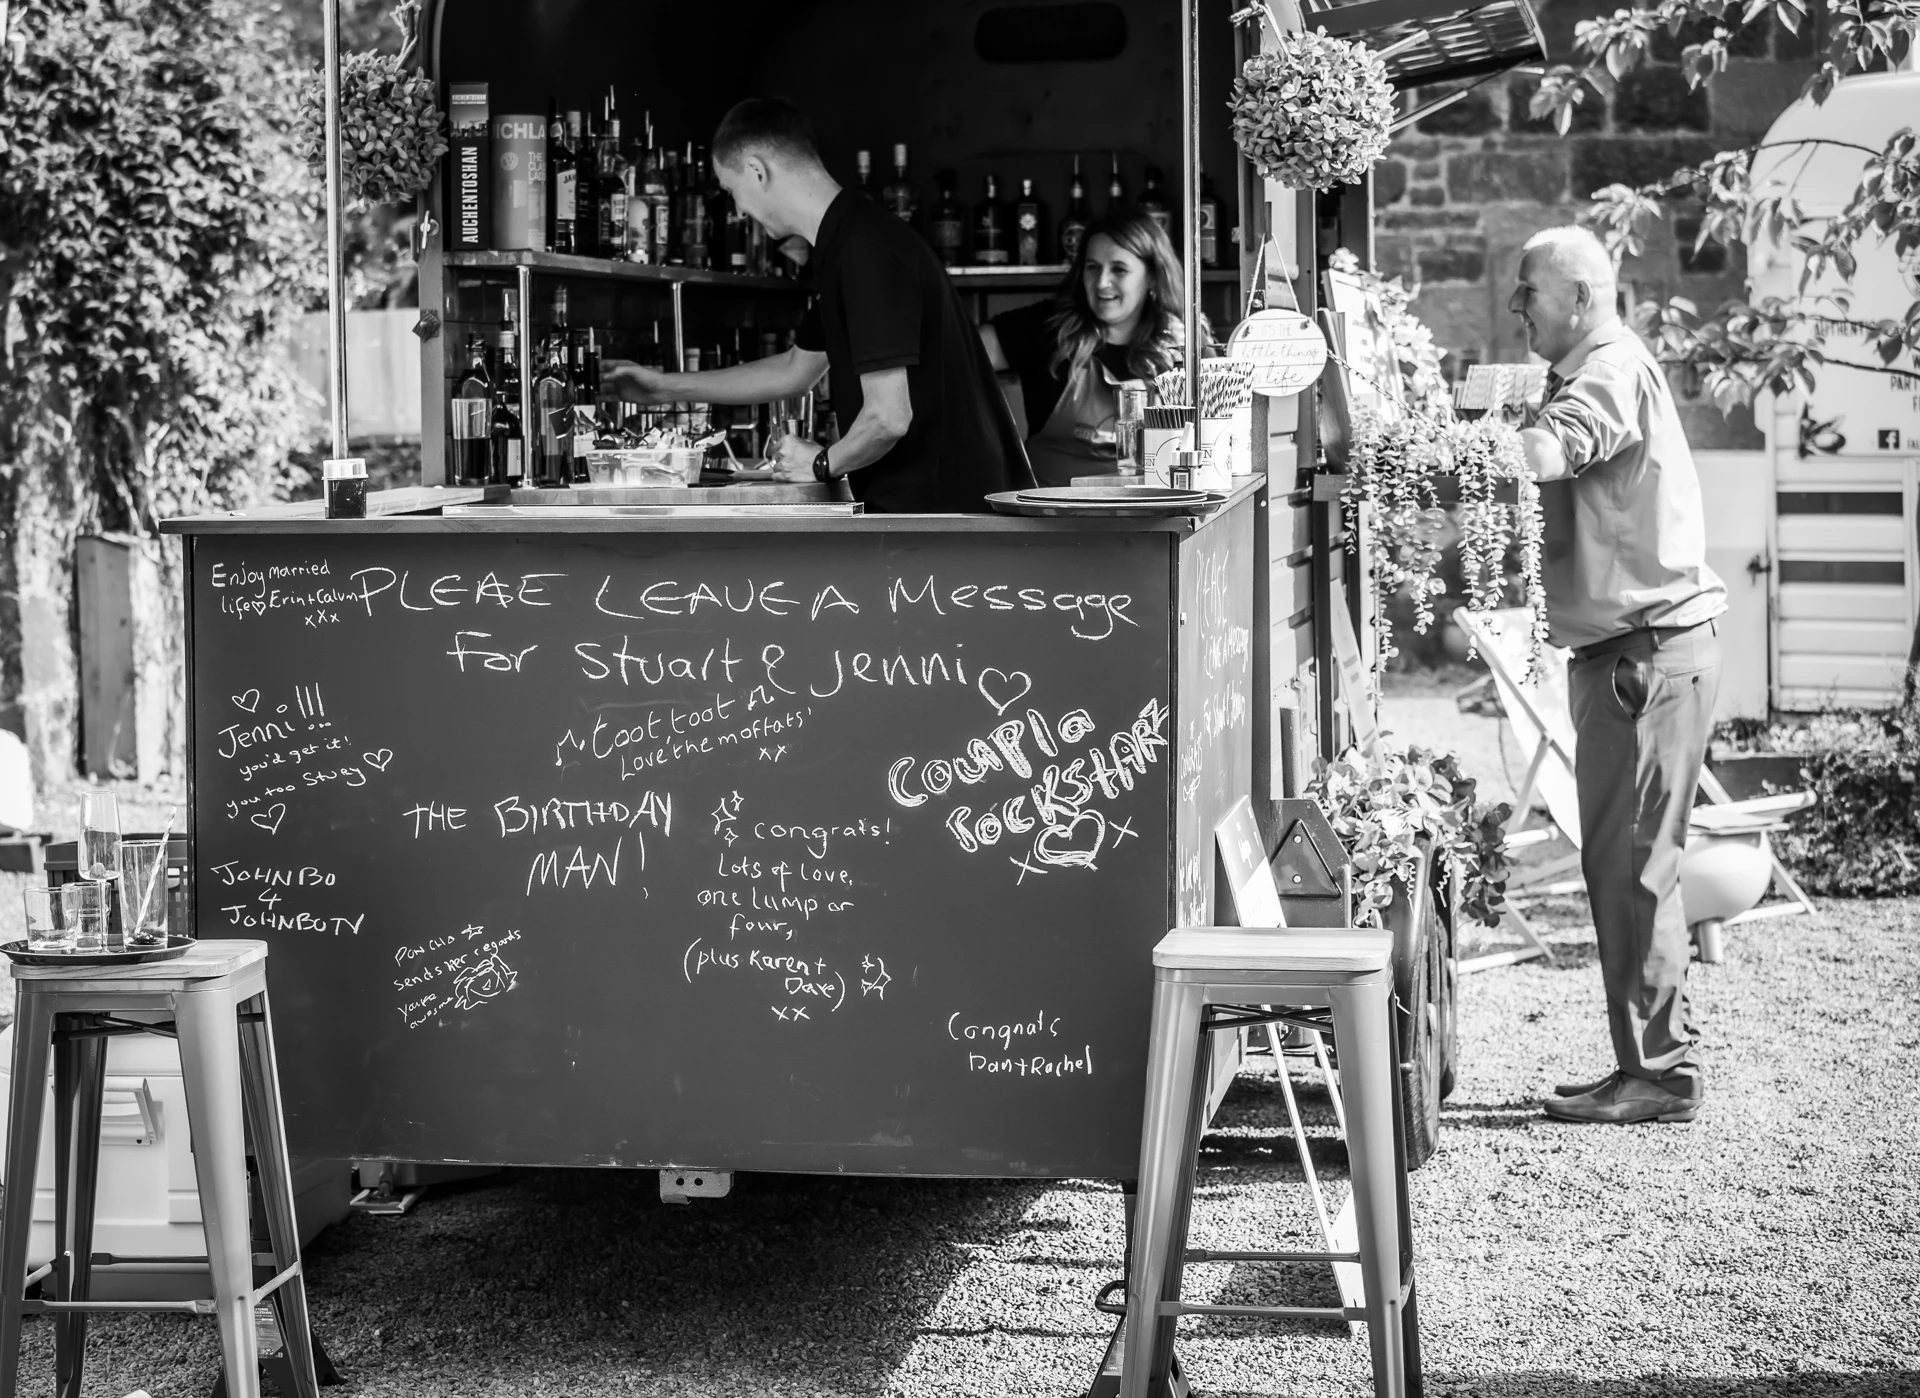 AUCHENTOSHAN
ICHLA
THE
IT'S THE
little things
life
Enjoy married
life ♡ Erin + Calum
xXx
PLEASE LEAVE A Message
For Stuart & Jenni ♡
♡
Jenni!!!
you'd get it!
you too Stuey ♡
♡
toot toot
Love, the moffats'
xx
Coupla
rockstarz
X ♡ X
THE BIRTHDAY
MAN!
congrats!
Lots of love,
one lump or
four,
(plus Karen +
Dave)
xx
JOHN BO
4
JOHNBOTV
sends her regards
you're
awesome
Congrats
Dan + Rachel
PLEASE
LEAVE A Message
Stuart & Jenni